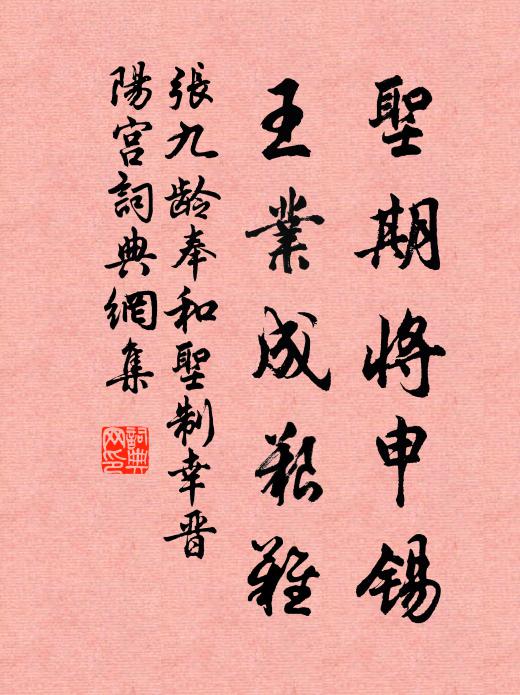 聖期將申錫
王業成艱難
張九龄奉和聖制幸晋
陽宫詞典網集
詞典
网印